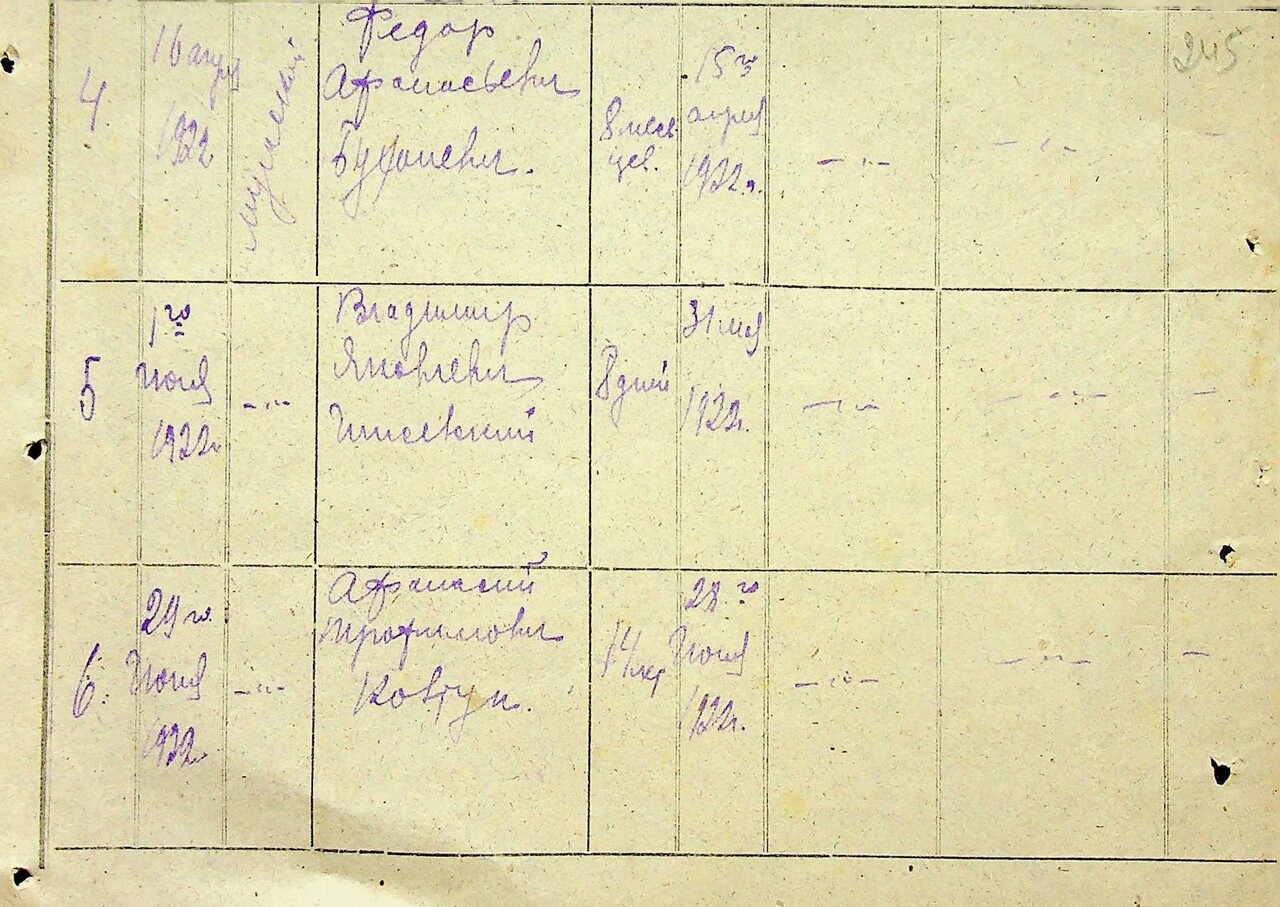 245
4
16 апрел
1922
мужеский
Федор
Афанасьевич
8 месяцев.
15 го
апреля
1922 г.
— „ —
— „ —
—
5
1 го
Июня
1922 г.
— „ —
Владимир
Яковлевич
8 дней
31 мая
1922 г.
— „ —
— „ —
—
6.
29 го
Июня
1922
— „ —
Афанасий
Трофимович
Ковтун.
14 лет
28 го
Июня
1922 г.
— „ —
— „ —
—